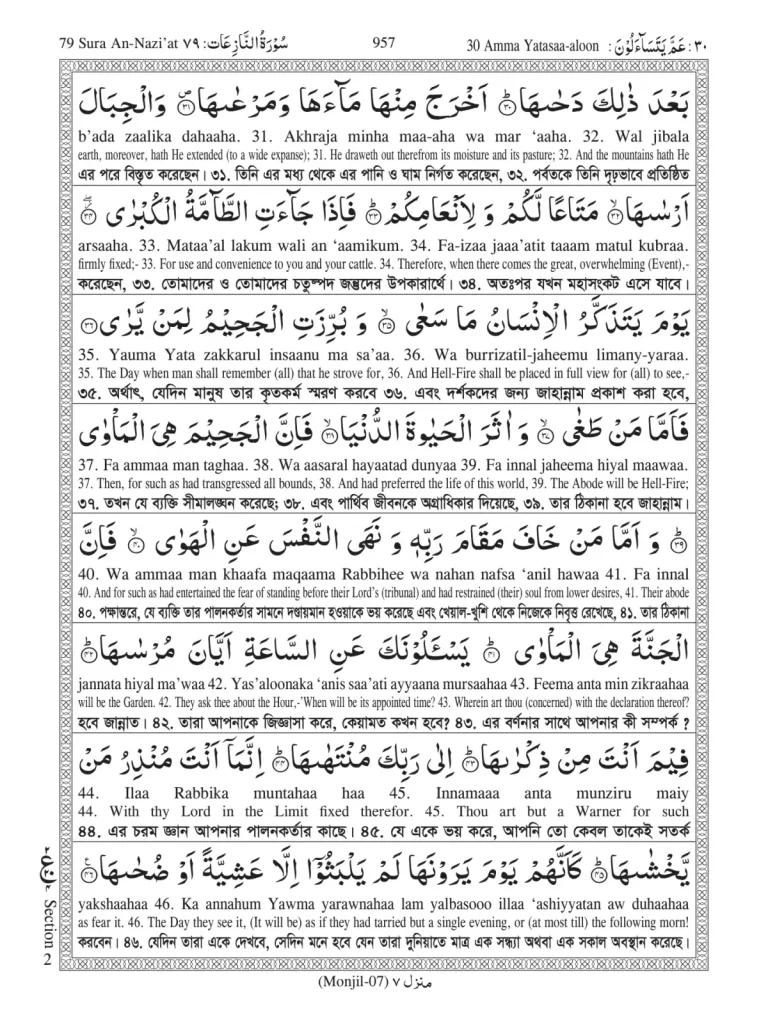 79 Sura An-Nazi'at ٧٩ :سُوْرَةُ النَّازِعَات 957 30 Amma Yatasaa-aloon : عَمَّ يَتَسَآءَلُوْنَ :٣٠
بَعْدَ ذٰلِكَ دَحٰىهَا ؕ﴿٣٠﴾ اَخْرَجَ مِنْهَا مَآءَهَا وَمَرْعٰىهَا ﴿٣١﴾ وَالْجِبَالَ
b'ada zaalika dahaaha. 31. Akhraja minha maa-aha wa mar 'aaha. 32. Wal jibala
earth, moreover, hath He extended (to a wide expanse); 31. He draweth out therefrom its moisture and its pasture; 32. And the mountains hath He
এর পরে বিস্তৃত করেছেন। ৩১. তিনি এর মধ্য থেকে এর পানি ও ঘাম নির্গত করেছেন, ৩২. পর্বতকে তিনি দৃঢ়ভাবে প্রতিষ্ঠিত
اَرْسٰىهَا ۙ﴿٣٢﴾ مَتَاعًا لَّكُمْ وَ لِاَنْعَامِكُمْ ؕ﴿٣٣﴾ فَاِذَا جَآءَتِ الطَّآمَّةُ الْكُبْرٰى ﴿٣٤﴾
arsaaha. 33. Mataa'al lakum wali an 'aamikum. 34. Fa-izaa jaaa'atit taaam matul kubraa.
firmly fixed;- 33. For use and convenience to you and your cattle. 34. Therefore, when there comes the great, overwhelming (Event),-
করেছেন, ৩৩. তোমাদের ও তোমাদের চতুষ্পদ জন্তুদের উপকারার্থে। ৩৪. অতঃপর যখন মহাসংকট এসে যাবে।
يَوْمَ يَتَذَكَّرُ الْاِنْسَانُ مَا سَعٰى ۙ﴿٣٥﴾ وَ بُرِّزَتِ الْجَحِيْمُ لِمَنْ يَّرٰى ﴿٣٦﴾
35. Yauma Yata zakkarul insaanu ma sa'aa. 36. Wa burrizatil-jaheemu limany-yaraa.
35. The Day when man shall remember (all) that he strove for, 36. And Hell-Fire shall be placed in full view for (all) to see,-
৩৫. অর্থাৎ, যেদিন মানুষ তার কৃতকর্ম স্মরণ করবে ৩৬. এবং দর্শকদের জন্য জাহান্নাম প্রকাশ করা হবে,
فَاَمَّا مَنْ طَغٰى ۙ﴿٣٧﴾ وَ اٰثَرَ الْحَيٰوةَ الدُّنْيَا ۙ﴿٣٨﴾ فَاِنَّ الْجَحِيْمَ هِيَ الْمَاْوٰى
37. Fa ammaa man taghaa. 38. Wa aasaral hayaatad dunyaa 39. Fa innal jaheema hiyal maawaa.
37. Then, for such as had transgressed all bounds, 38. And had preferred the life of this world, 39. The Abode will be Hell-Fire;
৩৭. তখন যে ব্যক্তি সীমালঙ্ঘন করেছে; ৩৮. এবং পার্থিব জীবনকে অগ্রাধিকার দিয়েছে, ৩৯. তার ঠিকানা হবে জাহান্নাম।
ؕ﴿٣٩﴾ وَ اَمَّا مَنْ خَافَ مَقَامَ رَبِّهٖ وَ نَهَى النَّفْسَ عَنِ الْهَوٰى ۙ﴿٤٠﴾ فَاِنَّ
40. Wa ammaa man khaafa maqaama Rabbihee wa nahan nafsa 'anil hawaa 41. Fa innal
40. And for such as had entertained the fear of standing before their Lord's (tribunal) and had restrained (their) soul from lower desires, 41. Their abode
৪০. পক্ষান্তরে, যে ব্যক্তি তার পালনকর্তার সামনে দণ্ডায়মান হওয়াকে ভয় করেছে এবং খেয়াল-খুশি থেকে নিজেকে নিবৃত্ত রেখেছে, ৪১. তার ঠিকানা
الْجَنَّةَ هِيَ الْمَاْوٰى ؕ﴿٤١﴾ يَسْـَٔلُوْنَكَ عَنِ السَّاعَةِ اَيَّانَ مُرْسٰىهَا ؕ﴿٤٢﴾
jannata hiyal ma'waa 42. Yas'aloonaka 'anis saa'ati ayyaana mursaahaa 43. Feema anta min zikraahaa
will be the Garden. 42. They ask thee about the Hour,-'When will be its appointed time? 43. Wherein art thou (concerned) with the declaration thereof?
হবে জান্নাত। ৪২. তারা আপনাকে জিজ্ঞাসা করে, কেয়ামত কখন হবে? ৪৩. এর বর্ণনার সাথে আপনার কী সম্পর্ক ?
فِيْمَ اَنْتَ مِنْ ذِكْرٰىهَا ؕ﴿٤٣﴾ اِلٰى رَبِّكَ مُنْتَهٰىهَا ؕ﴿٤٤﴾ اِنَّمَاۤ اَنْتَ مُنْذِرُ مَنْ
44. Ilaa Rabbika muntahaa haa 45. Innamaaa anta munziru maiy
44. With thy Lord in the Limit fixed therefor. 45. Thou art but a Warner for such
৪৪. এর চরম জ্ঞান আপনার পালনকর্তার কাছে। ৪৫. যে একে ভয় করে, আপনি তো কেবল তাকেই সতর্ক
يَّخْشٰىهَا ؕ﴿٤٥﴾ كَاَنَّهُمْ يَوْمَ يَرَوْنَهَا لَمْ يَلْبَثُوْۤا اِلَّا عَشِيَّةً اَوْ ضُحٰىهَا ﴿٤٦﴾
yakshaahaa 46. Ka annahum Yawma yarawnahaa lam yalbasooo illaa 'ashiyyatan aw duhaahaa
as fear it. 46. The Day they see it, (It will be) as if they had tarried but a single evening, or (at most till) the following morn!
করবেন। ৪৬. যেদিন তারা একে দেখবে, সেদিন মনে হবে যেন তারা দুনিয়াতে মাত্র এক সন্ধ্যা অথবা এক সকাল অবস্থান করেছে।
ع
Section 2
(Monjil-07) ٧ منزل